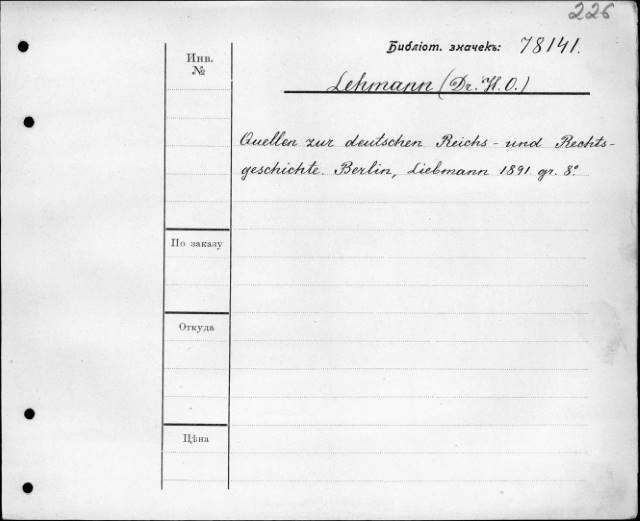 226
Библіот. значекъ: 78141.
Инв. №
Lehmann (Dr. H. O.)
Quellen zur deutschen Reichs- und Rechts-
geschichte. Berlin, Liebmann 1891. gr. 8º.
По заказу
Откуда
Цѣна